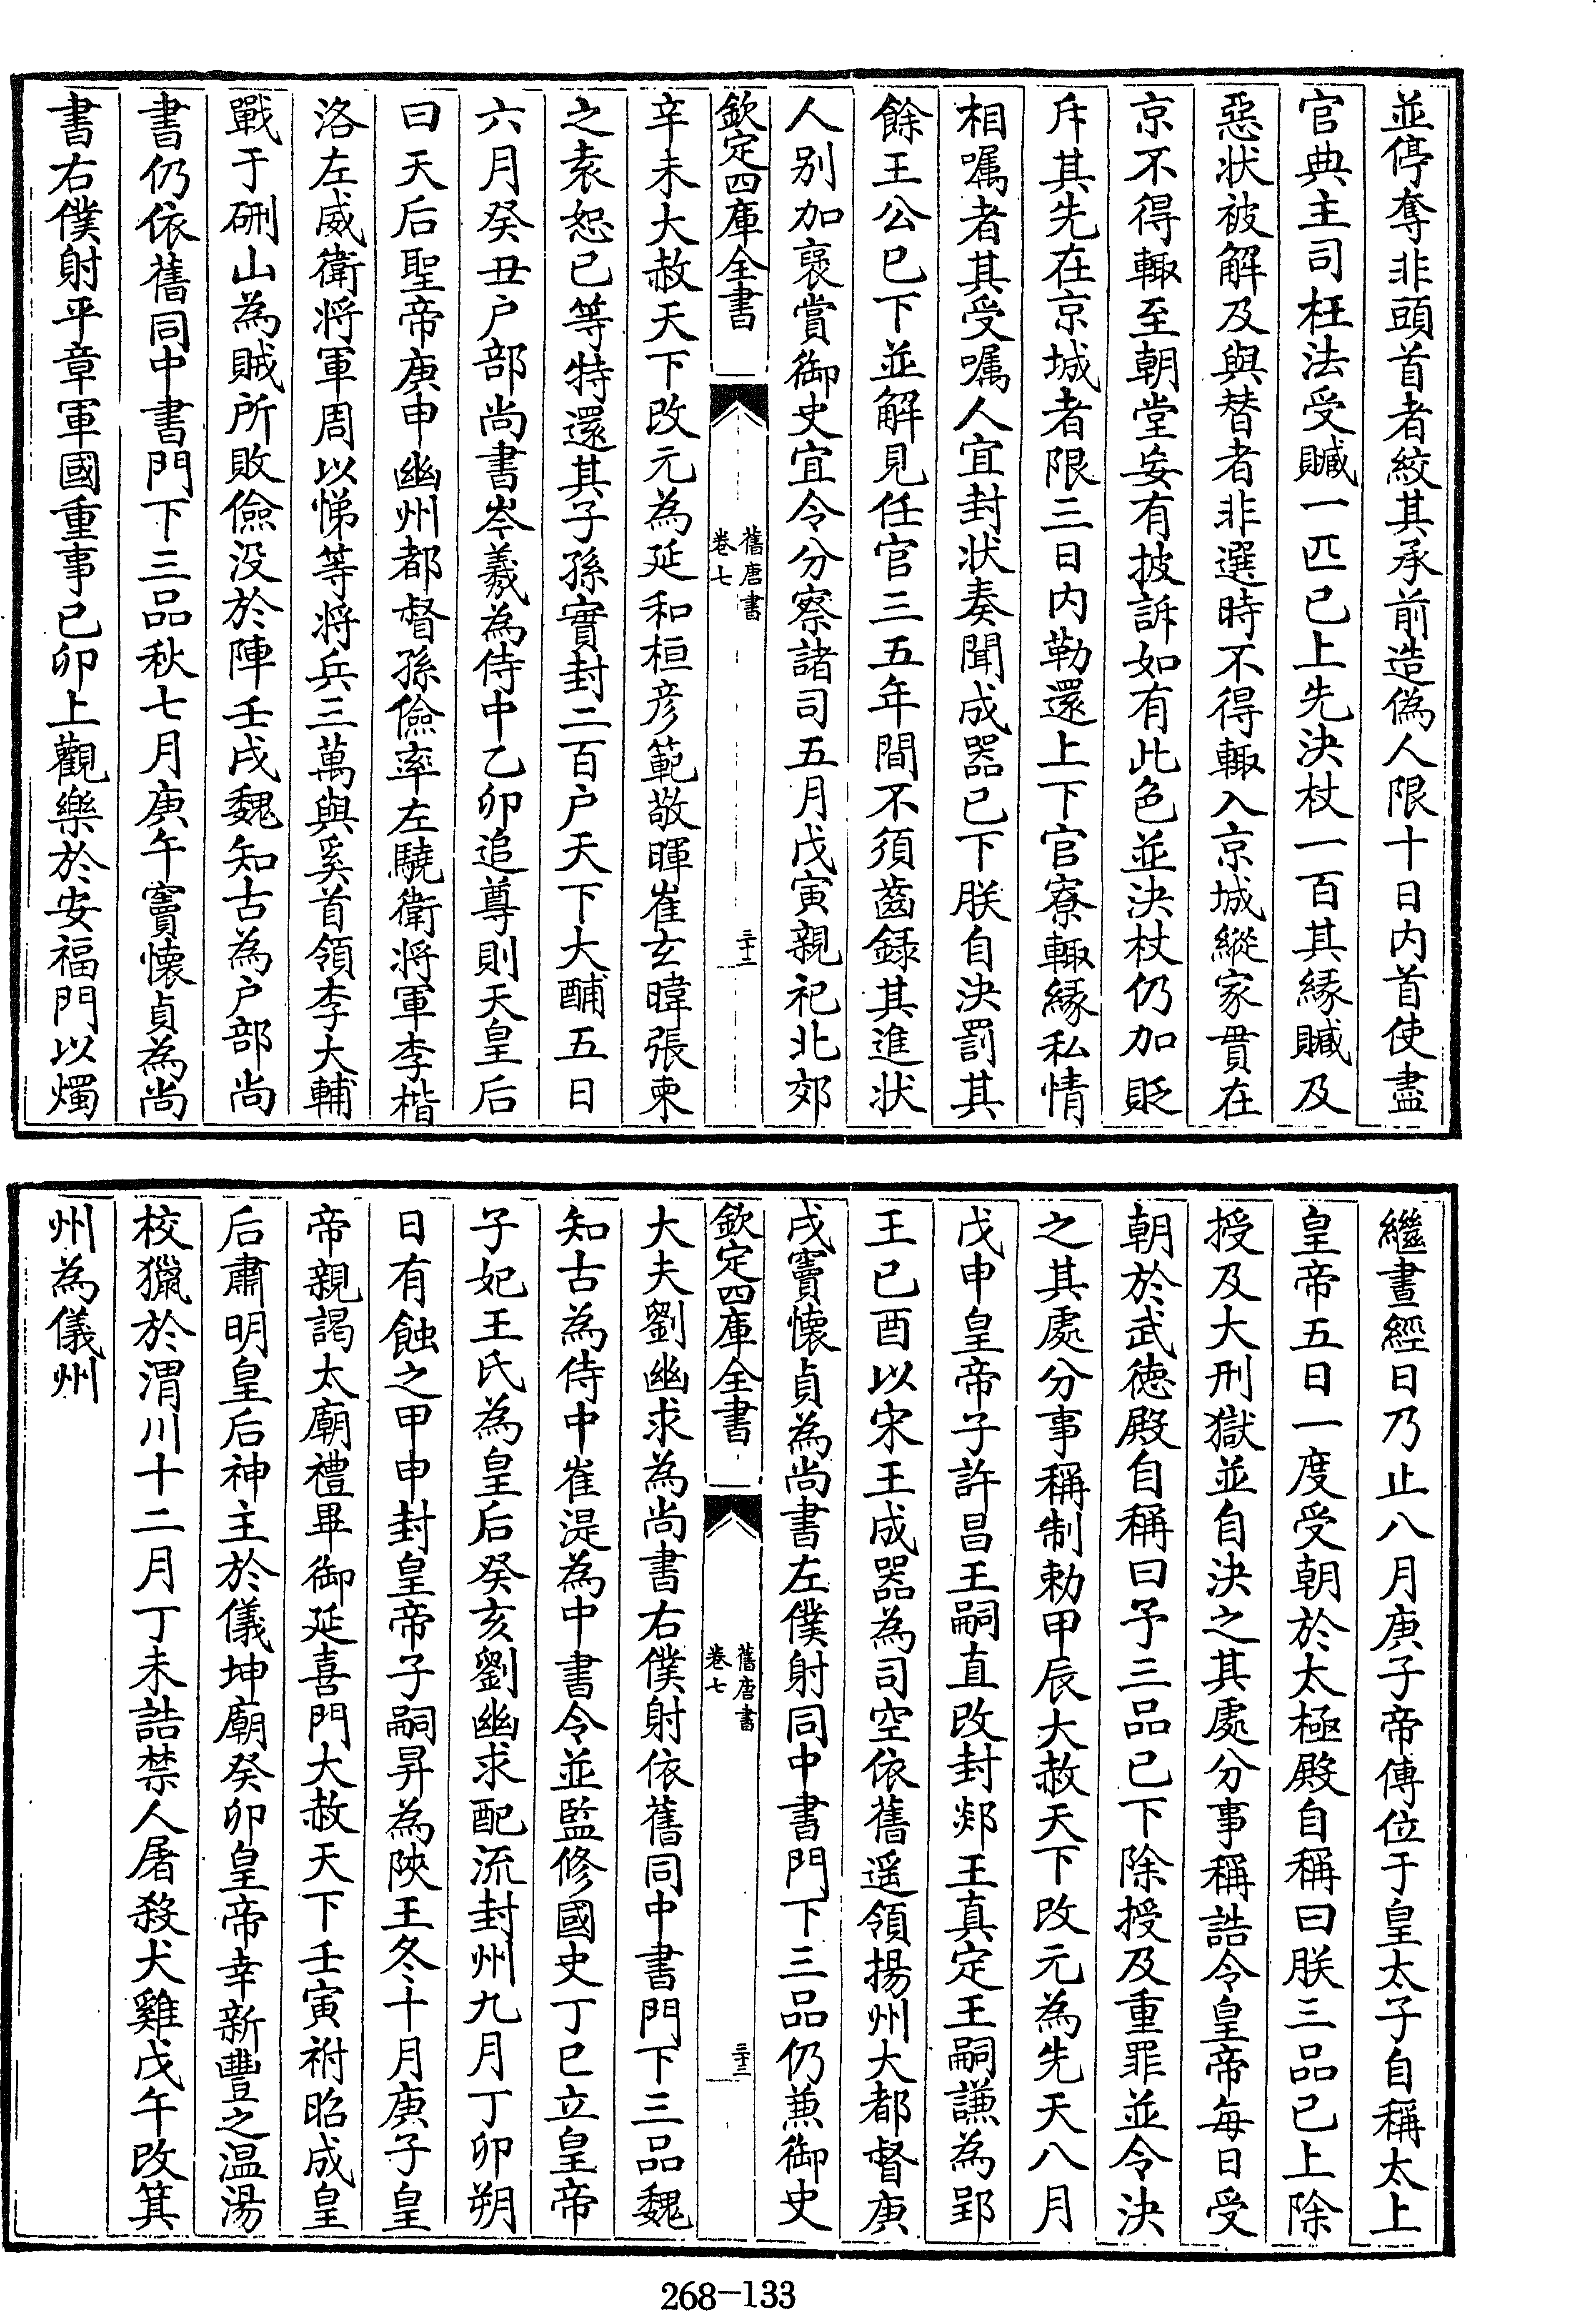 並停奪非頭首者絞其承前造偽人限十日内首使盡
官典主司枉法受贓一匹已上先決杖一百其縁贓及
惡状被解及與替者非選時不得輙入京城縱家貫在
京不得輙至朝堂妄有披訴如有此色並決杖仍加貶
斥其先在京城者限三日内勒還上下官寮輙縁私情
相囑者其受囑人宜封状奏聞成器已下朕自決罰其
餘王公已下並解見任官三五年間不須齒録其進状
人别加褒賞御史宜令分察諸司五月戊寅親祀北郊
欽定四庫全書
舊唐書
卷七
三十二
辛未大赦天下改元為延和桓彦範敬暉崔玄暐張柬
之袁恕已等特還其子孫實封二百户天下大酺五日
六月癸丑户部尚書岑羲為侍中乙卯追尊則天皇后
曰天后聖帝庚申幽州都督孫儉率左驍衛將軍李楷
洛左威衛將軍周以悌等將兵三萬與奚首領李大輔
戰于硎山為賊所敗儉没於陣壬戌魏知古為户部尚
書仍依舊同中書門下三品秋七月庚午竇懐貞為尚
書右僕射平章軍國重事已卯上觀樂於安福門以燭
繼晝經日乃止八月庚子帝傳位于皇太子自稱太上
皇帝五日一度受朝於太極殿自稱曰朕三品已上除
授及大刑獄並自決之其處分事稱誥令皇帝每日受
朝於武徳殿自稱曰予三品已下除授及重罪並令決
之其處分事稱制勅甲辰大赦天下改元為先天八月
戊申皇帝子許昌王嗣直改封郯王真定王嗣謙為郢
王已酉以宋王成器為司空依舊遥領揚州大都督庚
戌竇懐貞為尚書左僕射同中書門下三品仍兼御史
欽定四庫全書
舊唐書
卷七
三十三
大夫劉幽求為尚書右僕射依舊同中書門下三品魏
知古為侍中崔湜為中書令並監修國史丁巳立皇帝
子妃王氏為皇后癸亥劉幽求配流封州九月丁卯朔
日有蝕之甲申封皇帝子嗣昇為陜王冬十月庚子皇
帝親謁太廟禮畢御延喜門大赦天下壬寅祔昭成皇
后肅明皇后神主於儀坤廟癸卯皇帝幸新豐之温湯
校獵於渭川十二月丁未誥禁人屠殺犬雞戊午改箕
州為儀州
268-133